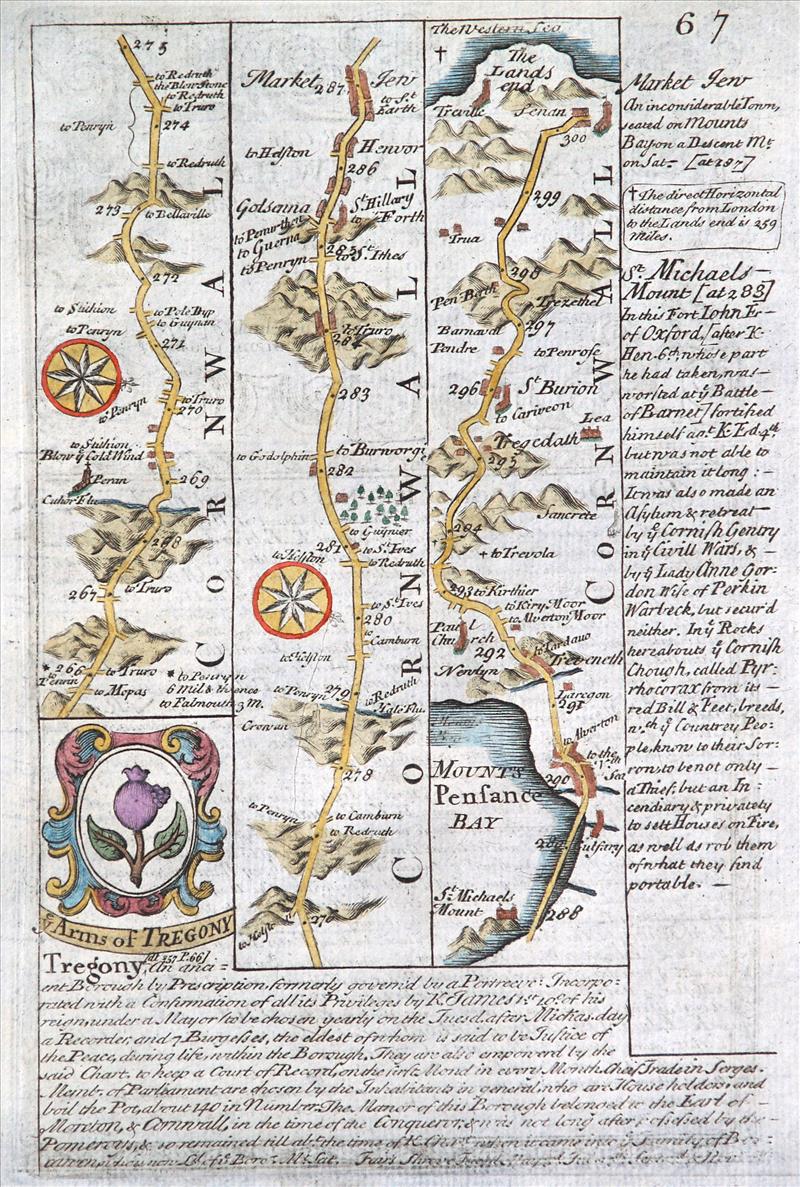 67
275
to Redruth
the Blow Stone
to Redruth
to Truro
to Penryn
274
to Redruth
273
to Bellaville
272
to Stithion
to Pole Dyp
to Guynan
to Penryn
271
to Penryn
to Truro
270
to Stithion
Blow ye Cold Wind
Peran
269
Cuhor Flu
268
267
to Truro
266
to Truro
to Penryn
6 Mild & thence
to Falmouth 3 M.
to Mopas
CORNWALL
Market Jew
287
to St
Earth
to Helston
Henvor
286
Golsenna
St Hillary
Forth
to Guerna
285
to St. Ithes
to Penryn
to Truro
284
283
to Godolphin
to Burnworgi
282
to Guynier
281
to St. Ives
to Helston
to Redruth
to St. Ives
280
to Camburn
to Helston
to Penryn
279
to Redruth
Hale Flu.
Crowan
278
to Penryn
to Camburn
to Redruth
276
to Helston
CORNWALL
The Western Sea
†
The
Lands
end
Treville
Senan
300
299
Trua
298
Pen Bath
Trezethel
297
Barnaval
Pendre
to Penrose
296
St Burion
to Cariveon
Lea
Tregedath
295
Sancrete
294
to Trevola
293
to Kirthier
to Kiry Moor
to Alverton Moor
Paul
Church
292
to Landauo
Treveneth
Newlyn
Laregon
291
to Alverton
to the
Sea
290
MOUNTS
Pensance
BAY
289
Gulsary
St Michaels
Mount
288
CORNWALL
Market Jew
An inconsiderable Town,
seated on Mounts
Bay on a Descent Mt
on Sat- [at 287]
† The direct Horizontal
distance from London
to the Lands end is 259
Miles.
St. Michaels
Mount [at 283]
In this Fort Iohn Er-
of Oxford, [after K-
Hen. 6th whose part
he had taken, was-
worsted at ye Battle-
of Barnet] fortified
himself agt. K. Ed. 4th
but was not able to
maintain it long:-
It was also made an
Asylum & retreat-
by ye Cornish Gentry
in ye Civill Wars, &-
by ye Lady Anne Gor-
don Wife of Perkin
Warbeck, but secur'd
neither. In ye Rocks
hereabouts ye Cornish
Chough, called Pyr-
rhocorax from its-
red Bill & Feet, breeds,
wch ye Countrey Peo-
ple, know to their Sor-
row, to be not only-
a Thief, but an In-
cendiary & privately
to sett Houses on Fire,
as well as rob them
of what they find
portable.-
ye Arms of TREGONY
Tregony, [at 257 P. 66] An anci=
ent Borough by Prescription, formerly govern'd by a Portreeve: Incorpo=
rated with a Confirmation of all its Privileges by K. James 1st 19o of his
reign under a Mayor to be chosen yearly on the Tuesd. after Michas. day
a Recorder and 7 Burgesses, the eldest of whom is said to be Justice of
the Peace, during life, within the Borough, They are also empowerd by the
said Chart. to keep a Court of Record, on the first Mond. in every Month Chief Trade in Serges.
Memb. of Parliament are chosen by the Inhabitants in general, who are House holders and
boil the Pot, about 140 in Number. The Manor of this Borough belonged to the Earl of
Moreton, & Cornwall, in the time of the Conqueror, & was not long after possessed by the
Pomeroys, & so remained till abt. the time of K. when it came into ye Family of
who is now Ld. of ye Boro. Mt. Sat. Fairs Shrove